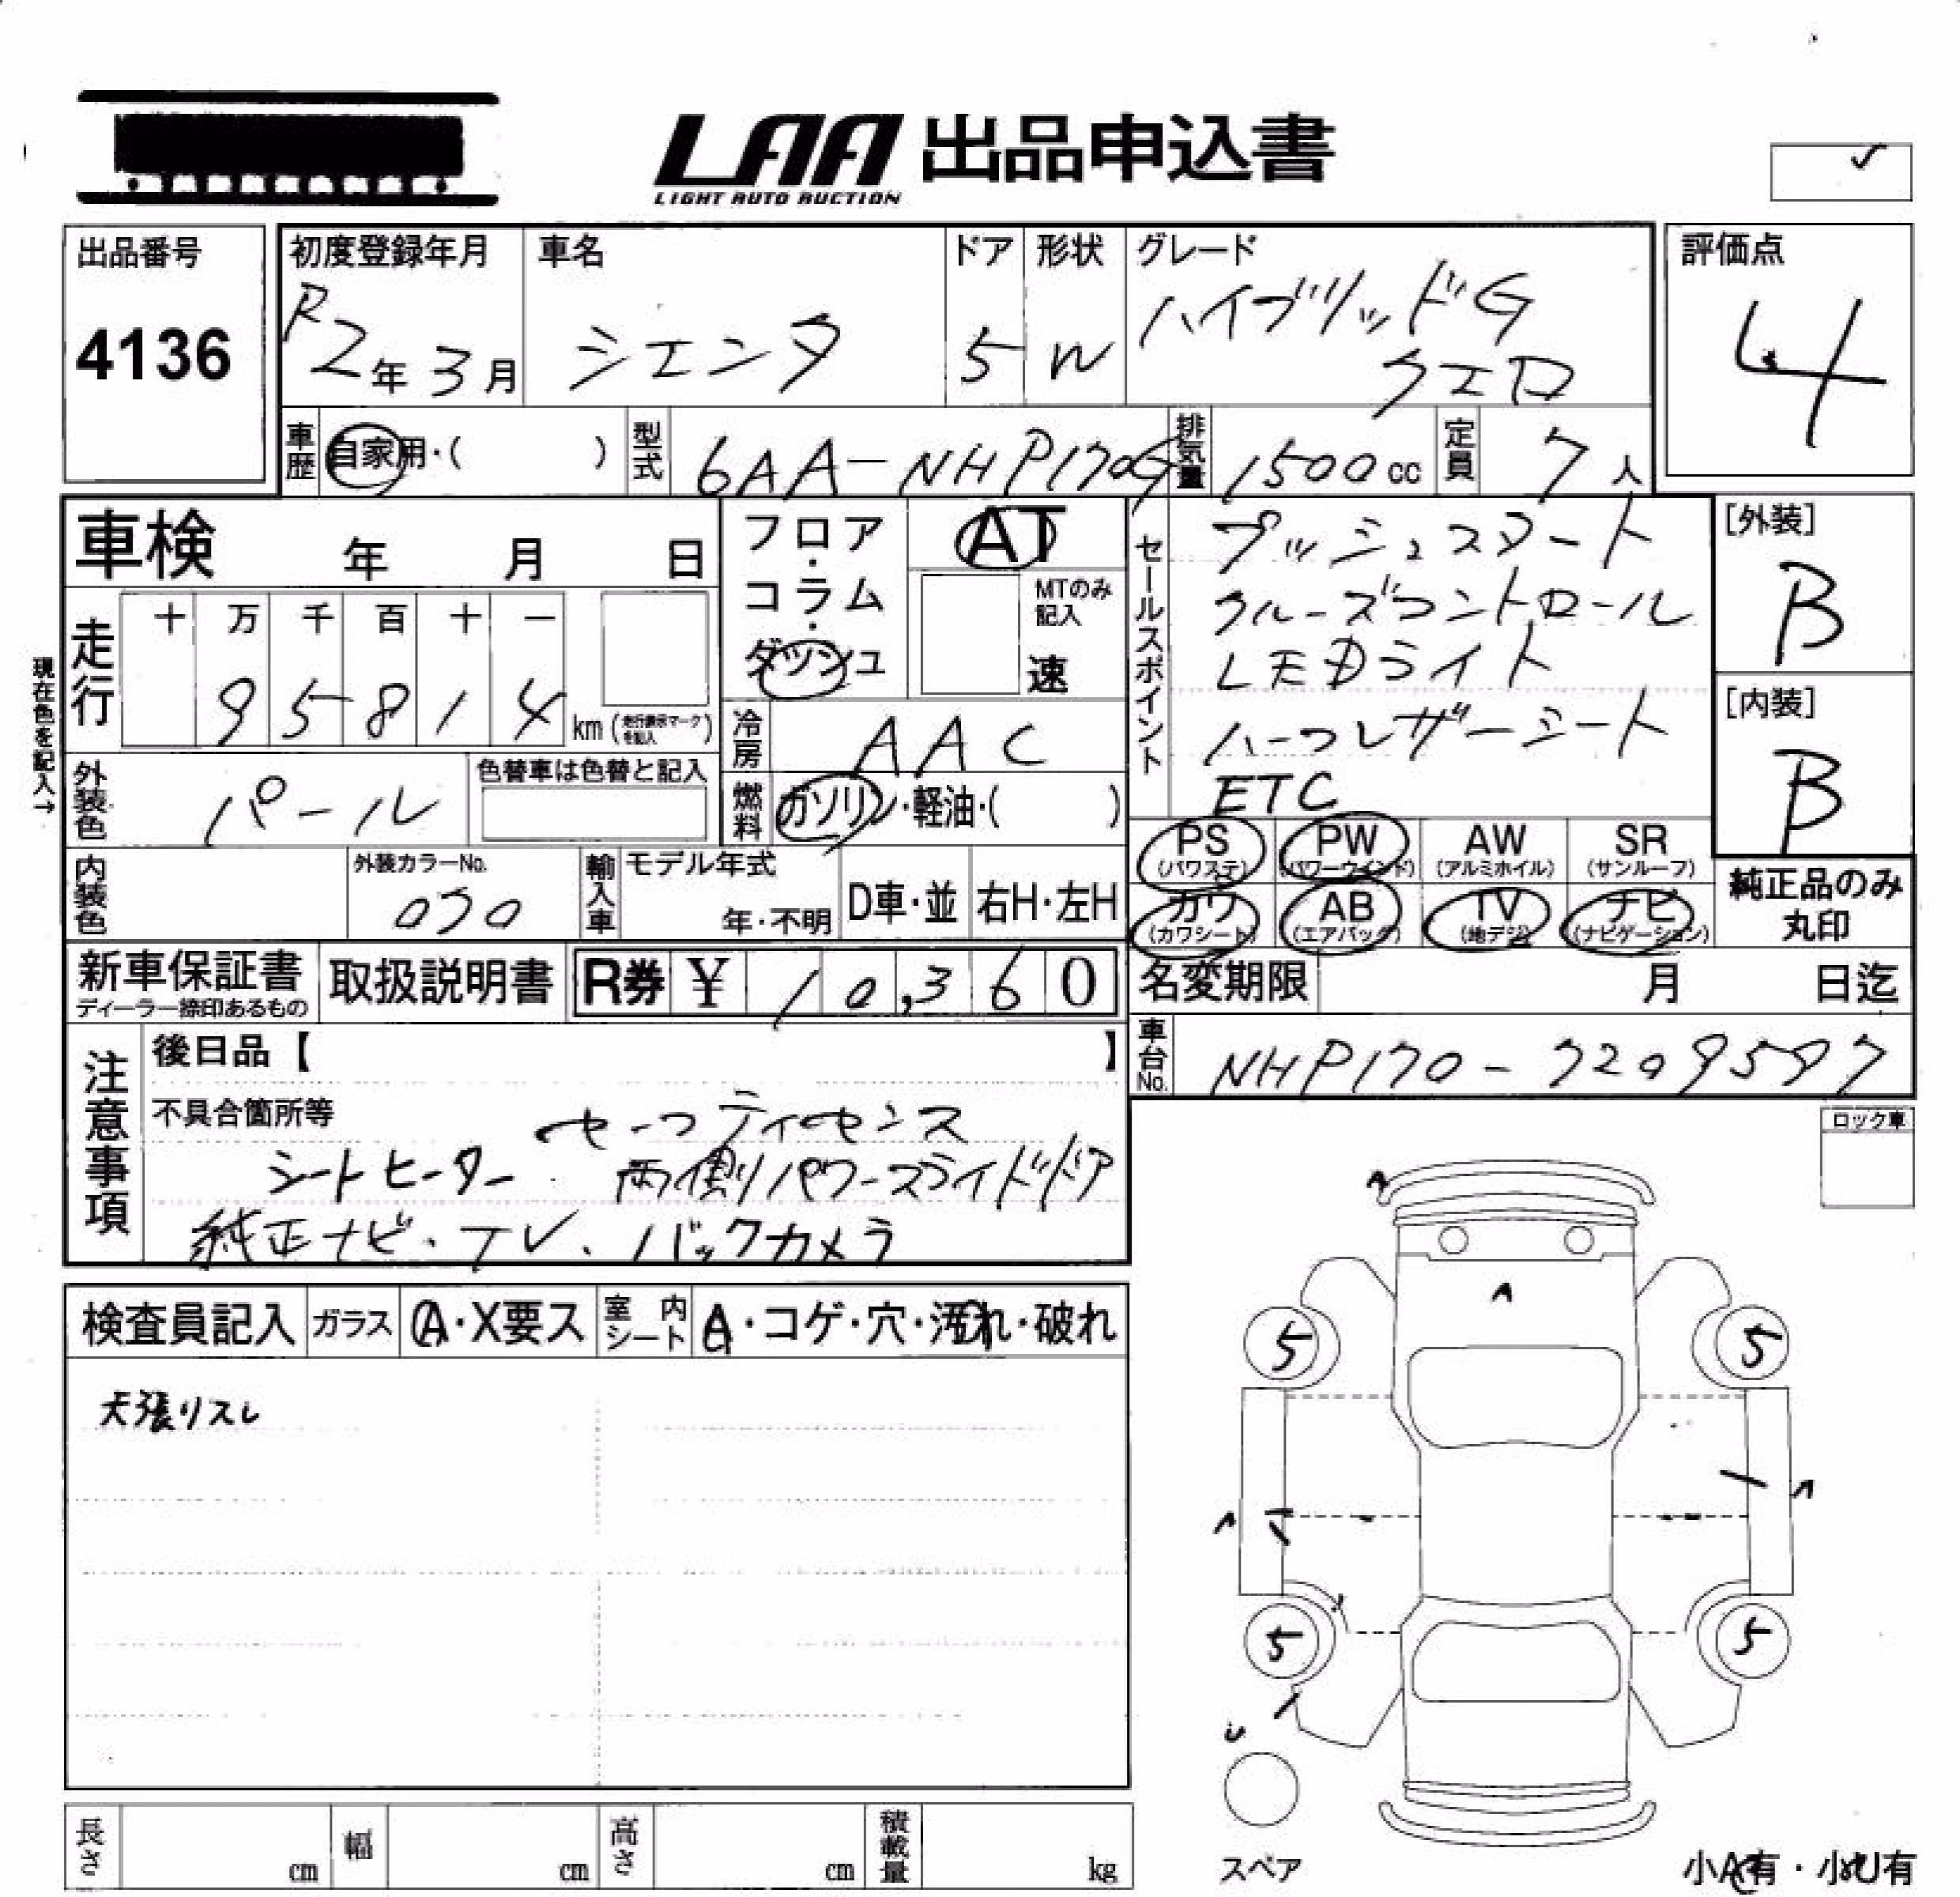 LAA 出品申込書
LIGHT AUTO AUCTION
✓
出品番号
4136
初度登録年月
R2年3月
車名
シエンタ
ドア
5
形状
W
グレード
ハイブリッドG
クエロ
評価点
4
車歴
自家用・( )
型式
6AA-NHP170G
排気量
1500cc
定員
7人
車検 年 月 日
フロア・コラム・ダッシュ
AT
MTのみ記入
速
セールスポイント
プッシュスタート
クルーズコントロール
LEDライト
ハーフレザーシート
ETC
[外装]
B
[内装]
B
現在色を記入→
走行
十 万 千 百 十 一
95814
km (走行表示マークを記入)
冷房
AAC
外装色
パール
色替車は色替と記入
燃料
ガソリン・軽油・( )
PS (パワステ)
PW (パワーウインド)
AW (アルミホイル)
SR (サンルーフ)
内装色
外装カラーNo.
070
輸入車
モデル年式
年・不明
D車・並
右H・左H
カワ (カワシート)
AB (エアバック)
TV (地デジ)
ナビ (ナビゲーション)
純正品のみ丸印
新車保証書
ディーラー捺印あるもの
取扱説明書
R券 ¥ 10,360
名変期限 月 日迄
車台No.
NHP170-7209597
注意事項
後日品【 】
不具合箇所等
セーフティセンス
シートヒーター 両側パワースライドドア
純正ナビ・TV・バックカメラ
ロック車
検査員記入
ガラス
A・X要ス
室内シート
A・コゲ・穴・汚れ・破れ
天張りスレ
A
A
5
5
A
A
5
5
U
スペア
長さ cm
幅 cm
高さ cm
積載量 kg
小A有・小U有